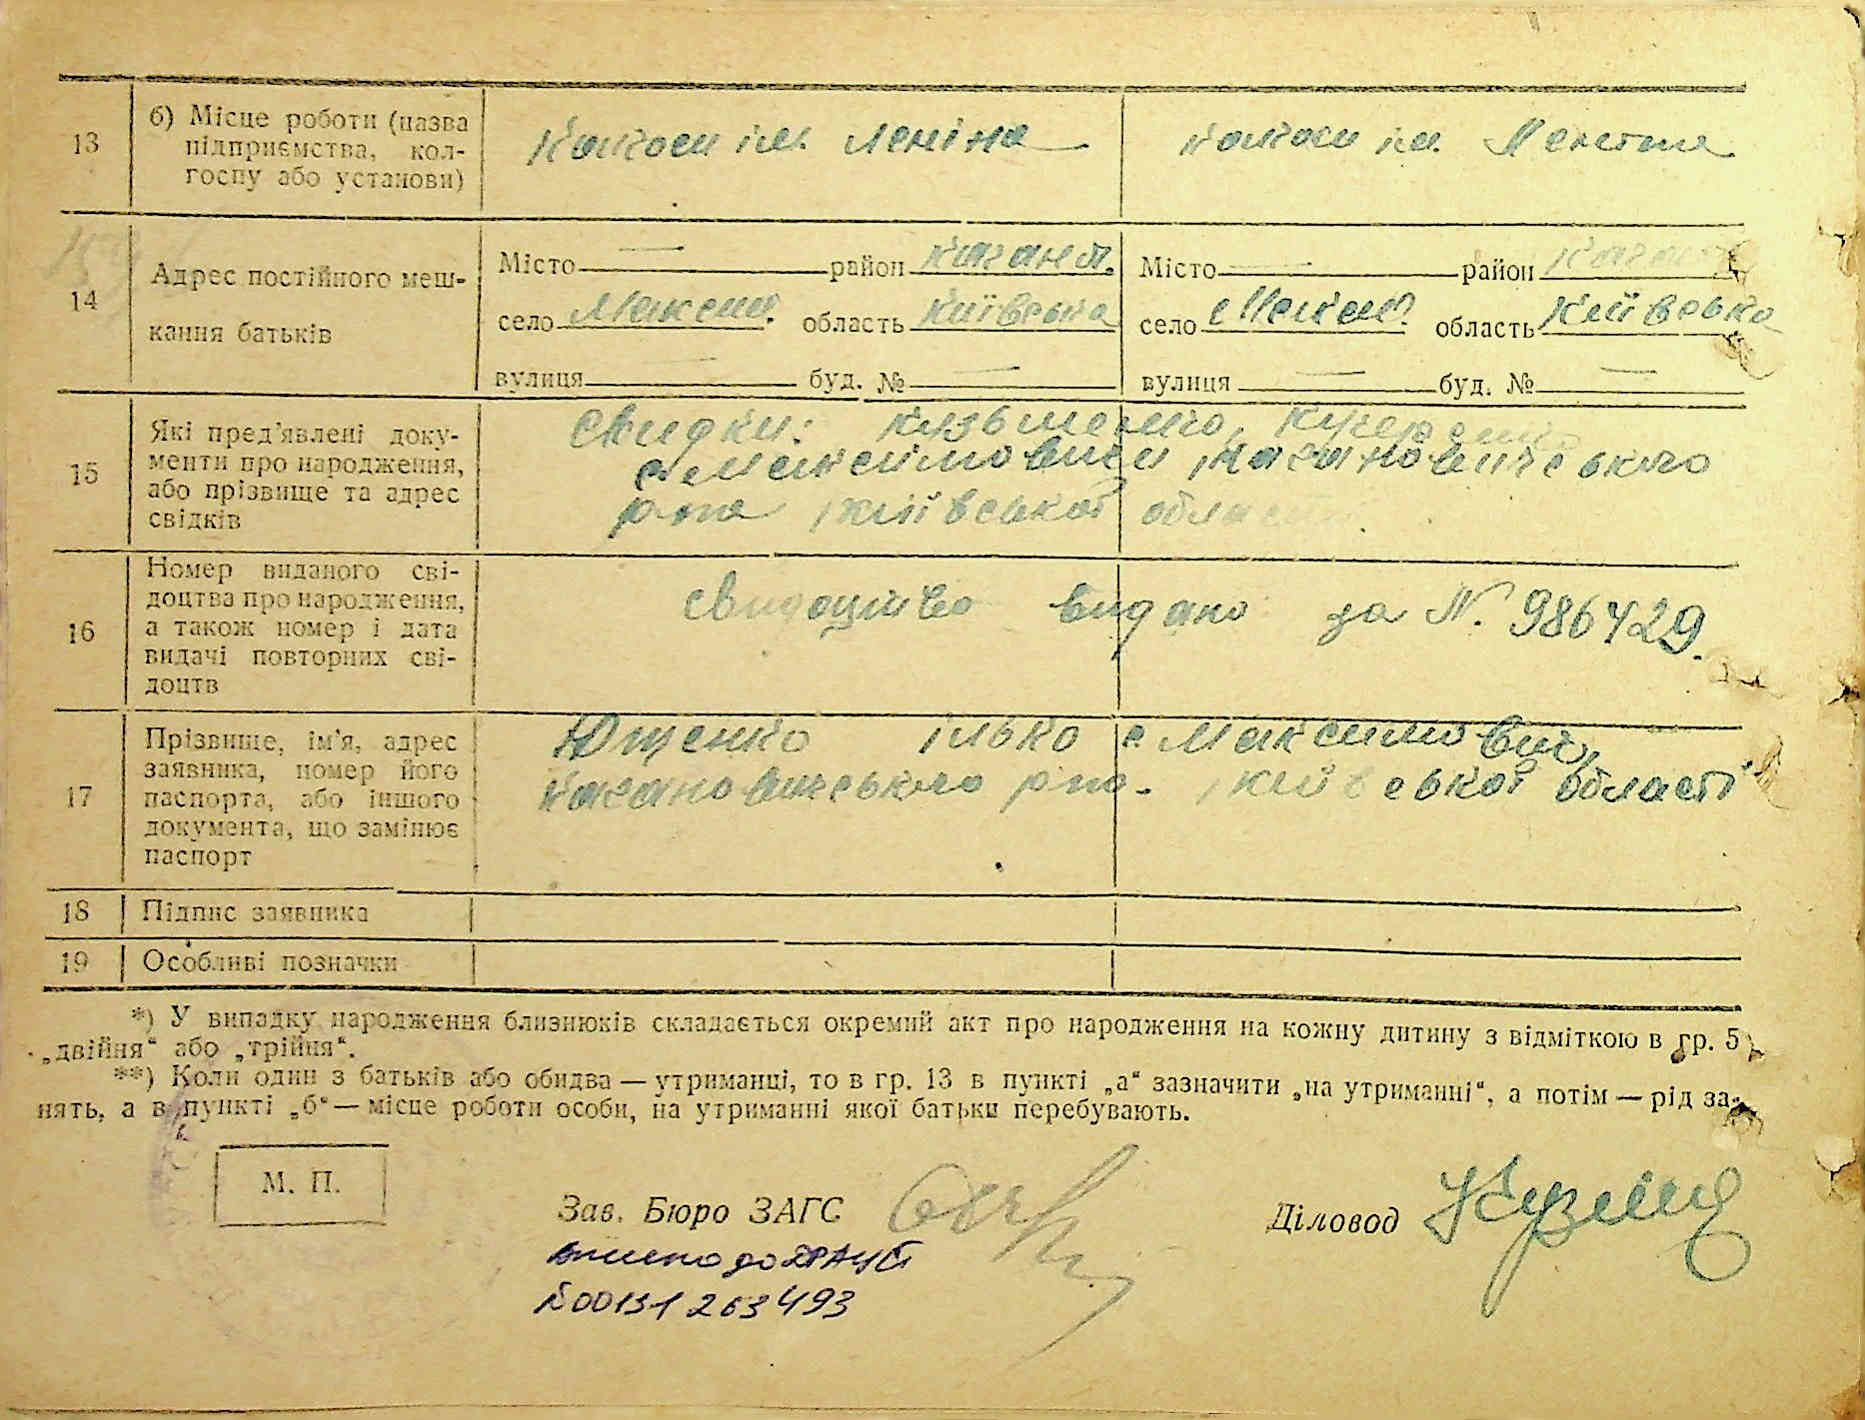 13
б) Місце роботи (назва
підприємства, кол-
госпу або установи)
Колгосп ім. Леніна
Колгосп ім. Леніна
14
Адрес постійного меш-
кання батьків
Місто — район Каганов.
село Максим. область Київська
вулиця — буд. № —
Місто — район
село Максим. область Київська
вулиця — буд. № —
15
Які пред'явлені доку-
менти про народження,
або прізвище та адрес
свідків
Свидки: Кузьменко, Кучеренко
с. Максимовичи, Кагановичського
р-на, Київської області
16
Номер виданого сві-
доцтва про народження,
а також номер і дата
видачі повторних сві-
доцтв
видано за N. 986429.
17
Прізвище, ім'я, адрес
заявника, номер його
паспорта, або іншого
документа, що замінює
паспорт
Ющенко Ілько с. Максимович,
Кагановичського р-на, Київської області
18 Підпис заявника
19 Особливі позначки
*) У випадку народження близнюків складається окремий акт про народження на кожну дитину з відміткою в гр. 5
„двійня“ або „трійня“.
**) Коли один з батьків або обидва — утриманці, то в гр. 13 в пункті „а“ зазначити „на утриманні“, а потім — рід за-
нять, а в пункті „б“ — місце роботи особи, на утриманні якої батьки перебувають.
М. П.
Зав. Бюро ЗАГС
Діловод
внесено до ДРАЦС
№00131263493